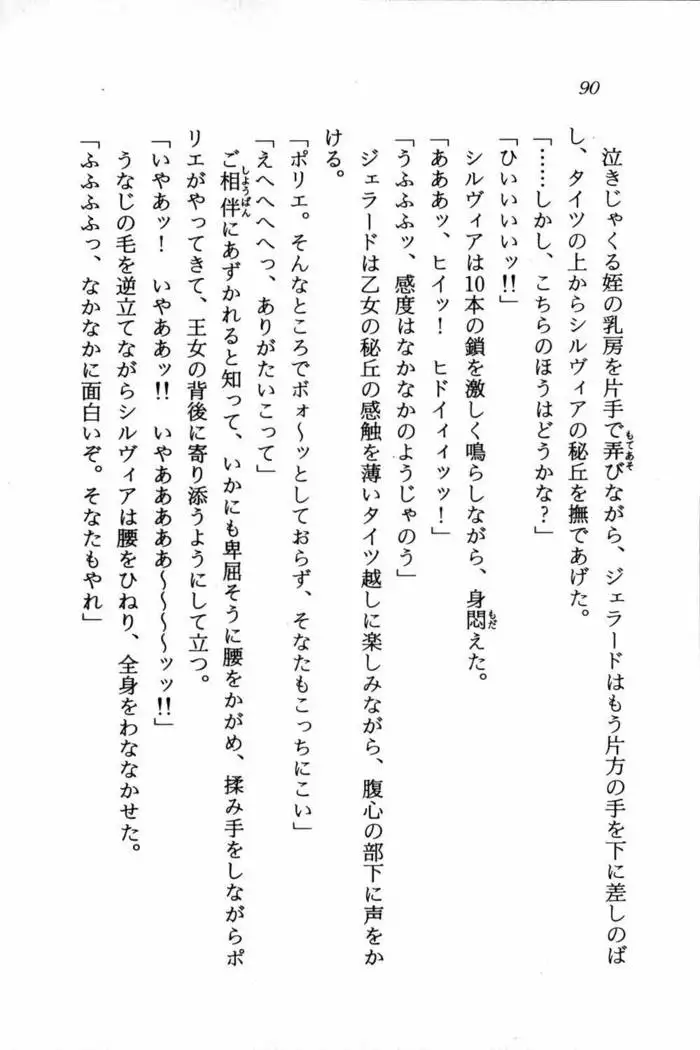 90
泣きじゃくる姪の乳房を片手で弄びながら、ジェラードはもう片方の手を下に差しのば
し、タイツの上からシルヴィアの秘丘を撫であげた。
「……しかし、こちらのほうはどうかな？」
「ひいいいいッ!!」
シルヴィアは10本の鎖を激しく鳴らしながら、身悶えた。
「あああッ、ヒイッ！　ヒドイィィッッ！」
「うふふふッ、感度はなかなかのようじゃのう」
ジェラードは乙女の秘丘の感触を薄いタイツ越しに楽しみながら、腹心の部下に声をか
ける。
「ポリエ。そんなところでボォ～ッとしておらず、そなたもこっちにこい」
「えへへへへっ、ありがたいこって」
ご相伴にあずかれると知って、いかにも卑屈そうに腰をかがめ、揉み手をしながらポ
リエがやってきて、王女の背後に寄り添うようにして立つ。
「いやあッ！　いやああッ!!　いやああああぁ～～～～ッッ!!」
うなじの毛を逆立てながらシルヴィアは腰をひねり、全身をわななかせた。
「ふふふふっ、なかなかに面白いぞ。そなたもやれ」